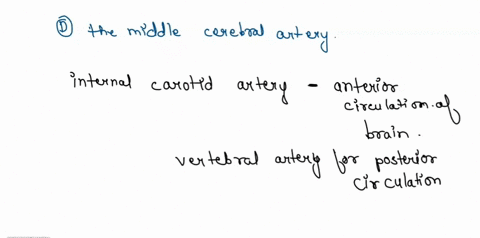 D the middle cerebral artery.
internal carotid artery - anterior
circulation of
brain.
vertebral artery for posterior
circulation